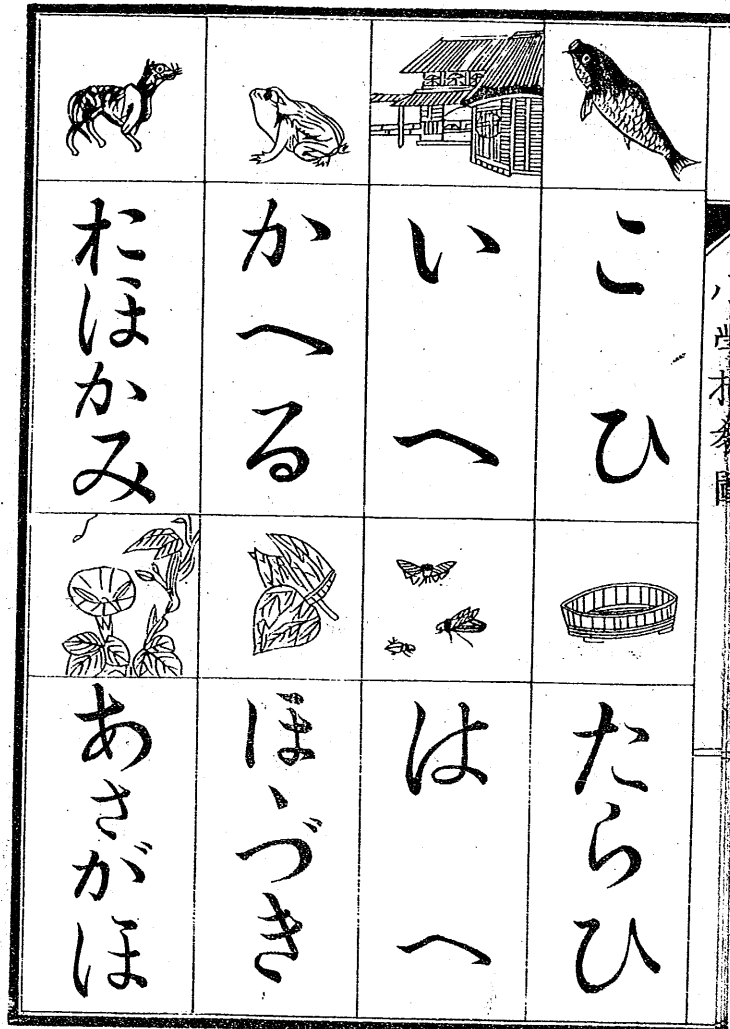 こひ
いへ
かへる
おほかみ
たらひ
はへ
ほゝづき
あさがほ